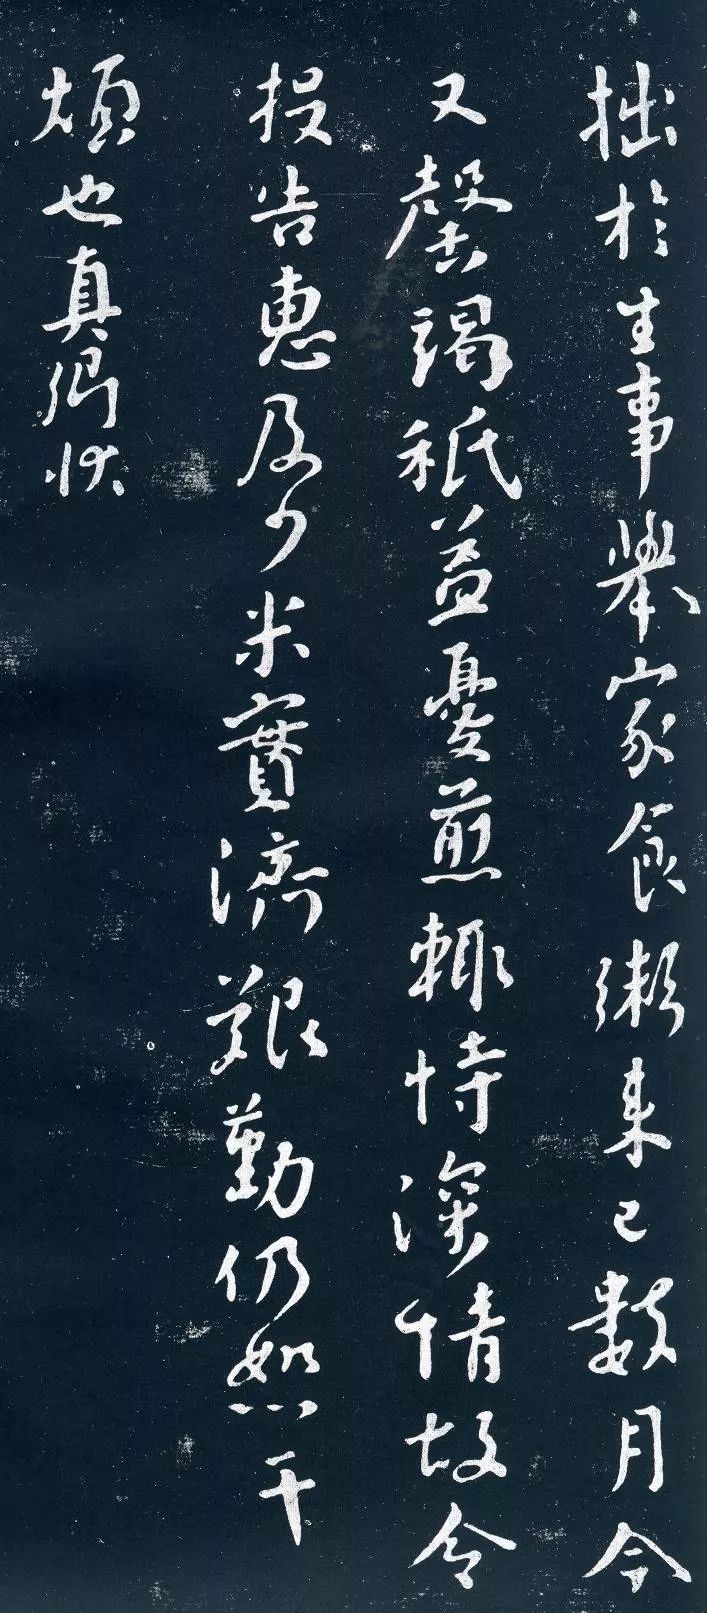 拙於生事舉家食粥來已數月今
又罄竭秖益憂煎輒恃深情故令
投告惠及少米實濟艱勤仍恕干
煩也真卿狀